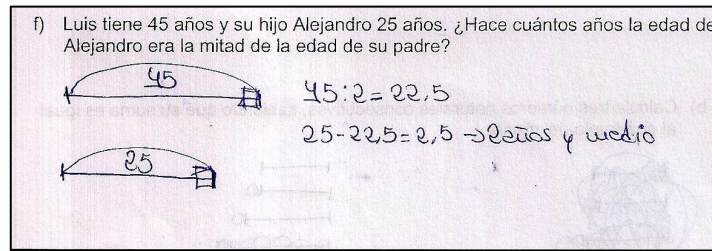 f) Luis tiene 45 años y su hijo Alejandro 25 años. ¿Hace cuántos años la edad de
Alejandro era la mitad de la edad de su padre?
45
45:2=22,5
25-22,5=2,5 →2años y medio
25